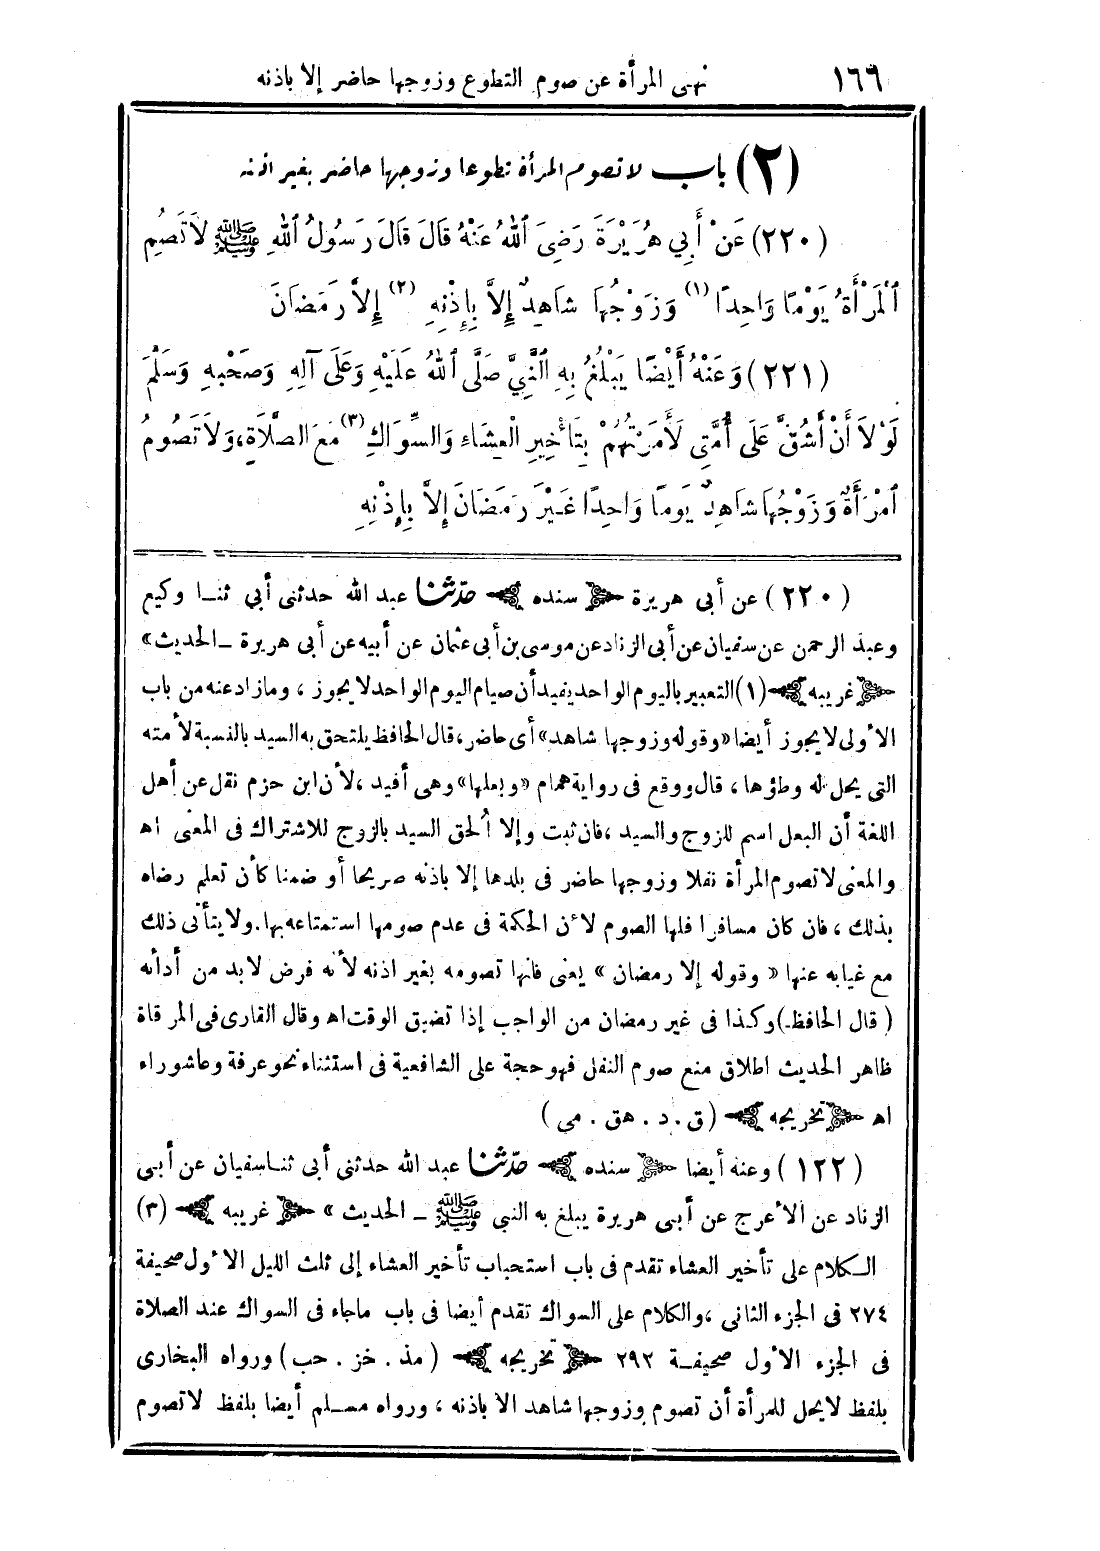 ١٦٦ نهى المرأة عن صوم التطوع وزوجها حاضر إلا باذنه
(٢) باب لا تصوم المرأة تطوعا وزوجها حاضر بغير اذنه
(٢٢٠) عَنْ أَبِي هُرَيْرَةَ رَضِىَ ٱللهُ عَنْهُ قَالَ قَالَ رَسُولُ ٱللهِ ﷺ لاَ تَصُمِ
ٱلْمَرْأَةُ يَوْمًا وَاحِدًا (١) وَزَوْجُهَا شَاهِدٌ إِلاَّ بِإِذْنِهِ (٢) إِلاَّ رَمَضَانَ
(٢٢١) وَعَنْهُ أَيْضًا يَبْلُغُ بِهِ ٱلنَّبِيَّ صَلَّى ٱللهُ عَلَيْهِ وَعَلَى آلِهِ وَصَحْبِهِ وَسَلَّمَ
لَوْلاَ أَنْ أَشُقَّ عَلَى أُمَّتِى لَأَمَرْتُهُمْ بِتَأْخِيرِ الْعِشَاءِ وَالسِّوَاكِ (٣) مَعَ الصَّلاَةِ، وَلاَ تَصُومُ
ٱمْرَأَةٌ وَزَوْجُهَا شَاهِدٌ يَوْمًا وَاحِدًا غَيْرَ رَمَضَانَ إِلاَّ بِإِذْنِهِ
(٢٢٠) عن أبى هريرة سنده حدّثنا عبد الله حدثنى أبي ثنا وكيع
وعبد الرحمن عن سفيان عن أبى الزناد عن موسى بن أبى عثمان عن أبيه عن أبى هريرة ــ الحديث»
غريبه (١) التعبير باليوم الواحد يفيد أن صيام اليوم الواحد لا يجوز ، وما زاد عنه من باب
الأولى لا يجوز أيضا «وقوله وزوجها شاهد» أى حاضر، قال الحافظ يلتحق به السيد بالنسبة لأمته
التى يحل له وطؤها ، قال ووقع فى رواية همام «وبعلها» وهى أفيد ، لأن ابن حزم نقل عن أهل
اللغة أن البعل اسم للزوج والسيد ، فان ثبت وإلا ألحق السيد بالزوج للاشتراك فى المعنى اه
والمعنى لا تصوم المرأة نفلا وزوجها حاضر فى بلدها إلا باذنه صريحا أو ضمنا كأن تعلم رضاه
بذلك ، فان كان مسافرا فلها الصوم لأن الحكمة فى عدم صومها استمتاعه بها. ولا يتأتى ذلك
مع غيابه عنها « وقوله إلا رمضان » يعنى فانها تصومه بغير اذنه لأنه فرض لابد من أدائه
( قال الحافظ ) وكذا فى غير رمضان من الواجب إذا تضيق الوقت اه وقال القارى فى المرقاة
ظاهر الحديث اطلاق منع صوم النفل فهو حجة على الشافعية فى استثناء نحو عرفة وعاشوراء
اه تخريجه (ق . د . هق . مى )
(١٢٢) وعنه أيضا سنده حدّثنا عبد الله حدثنى أبى ثنا سفيان عن أبى
الزناد عن الأعرج عن أبى هريرة يبلغ به النبي ﷺ ــ الحديث » غريبه (٣)
الكلام على تأخير العشاء تقدم فى باب استحباب تأخير العشاء إلى ثلث الليل الأول صحيفة
٢٧٤ فى الجزء الثانى ، والكلام على السواك تقدم أيضا فى باب ماجاء فى السواك عند الصلاة
فى الجزء الأول صحيفة ٢٩٢ تخريجه ( مذ . خز . حب ) ورواه البخارى
بلفظ لا يحل للمرأة أن تصوم وزوجها شاهد الا باذنه ، ورواه مسلم أيضا بلفظ لا تصوم